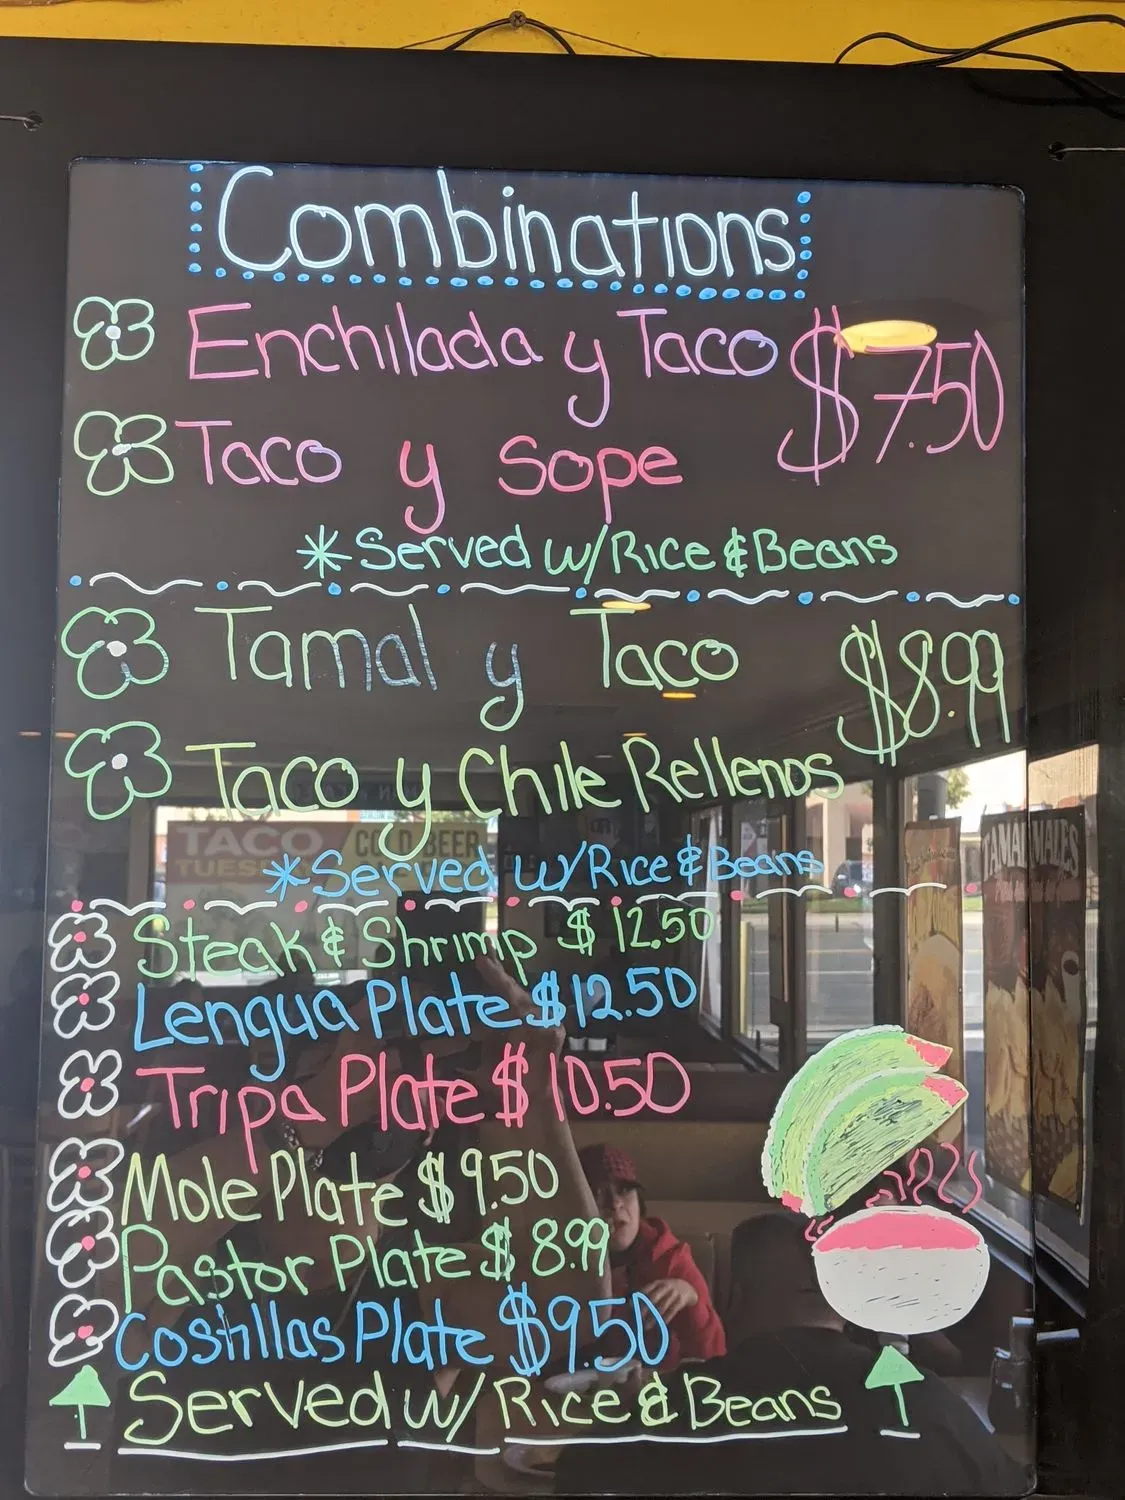 Combinations
Enchilada y Taco $7.50
Taco y Sope
*Served w/Rice & Beans
Tamal y Taco $8.99
Taco y Chile Rellenos
TACO
TUES
COLD BEER
*Served w/Rice & Beans
TAMALES
Steak & Shrimp $12.50
Lengua Plate $12.50
Tripa Plate $10.50
Mole Plate $9.50
Pastor Plate $8.99
Costillas Plate $9.50
Served w/ Rice & Beans